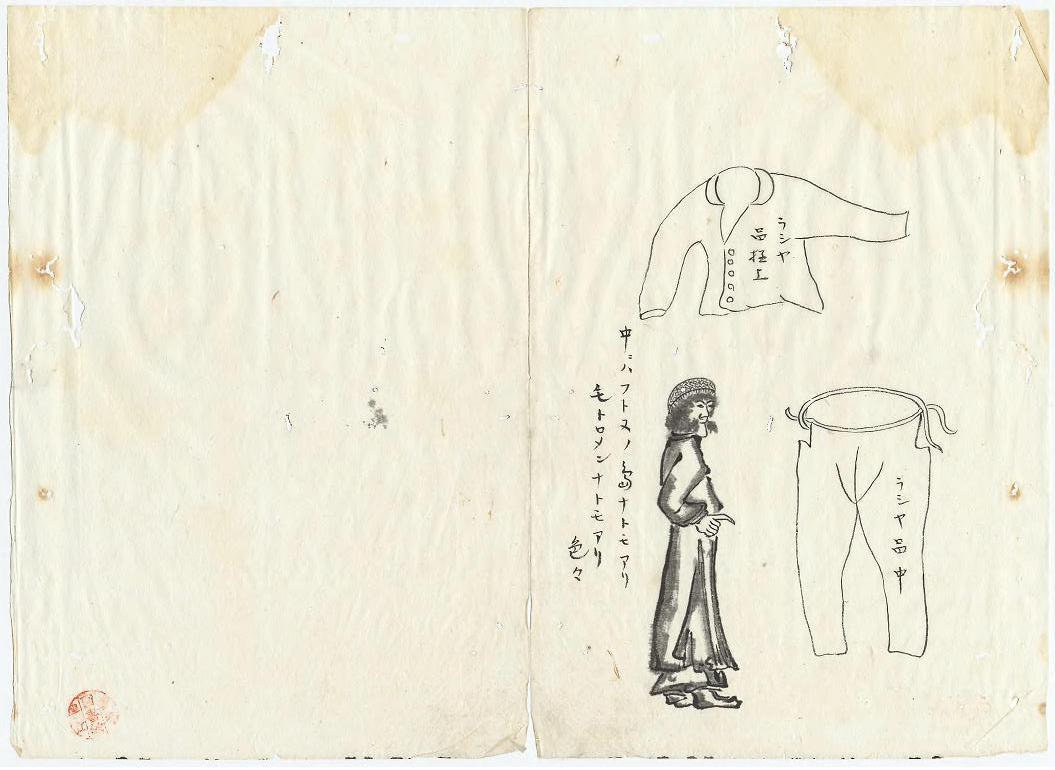 ラシヤ
品極上
ラシヤ品中
中ニハフトヌノ島ナトモアリ
毛トロメンナトモアリ
色々